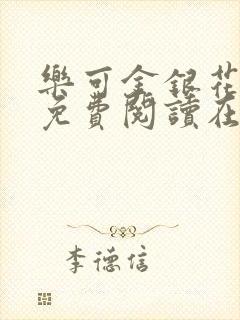 樂可金銀花
免費閱讀在
李德信